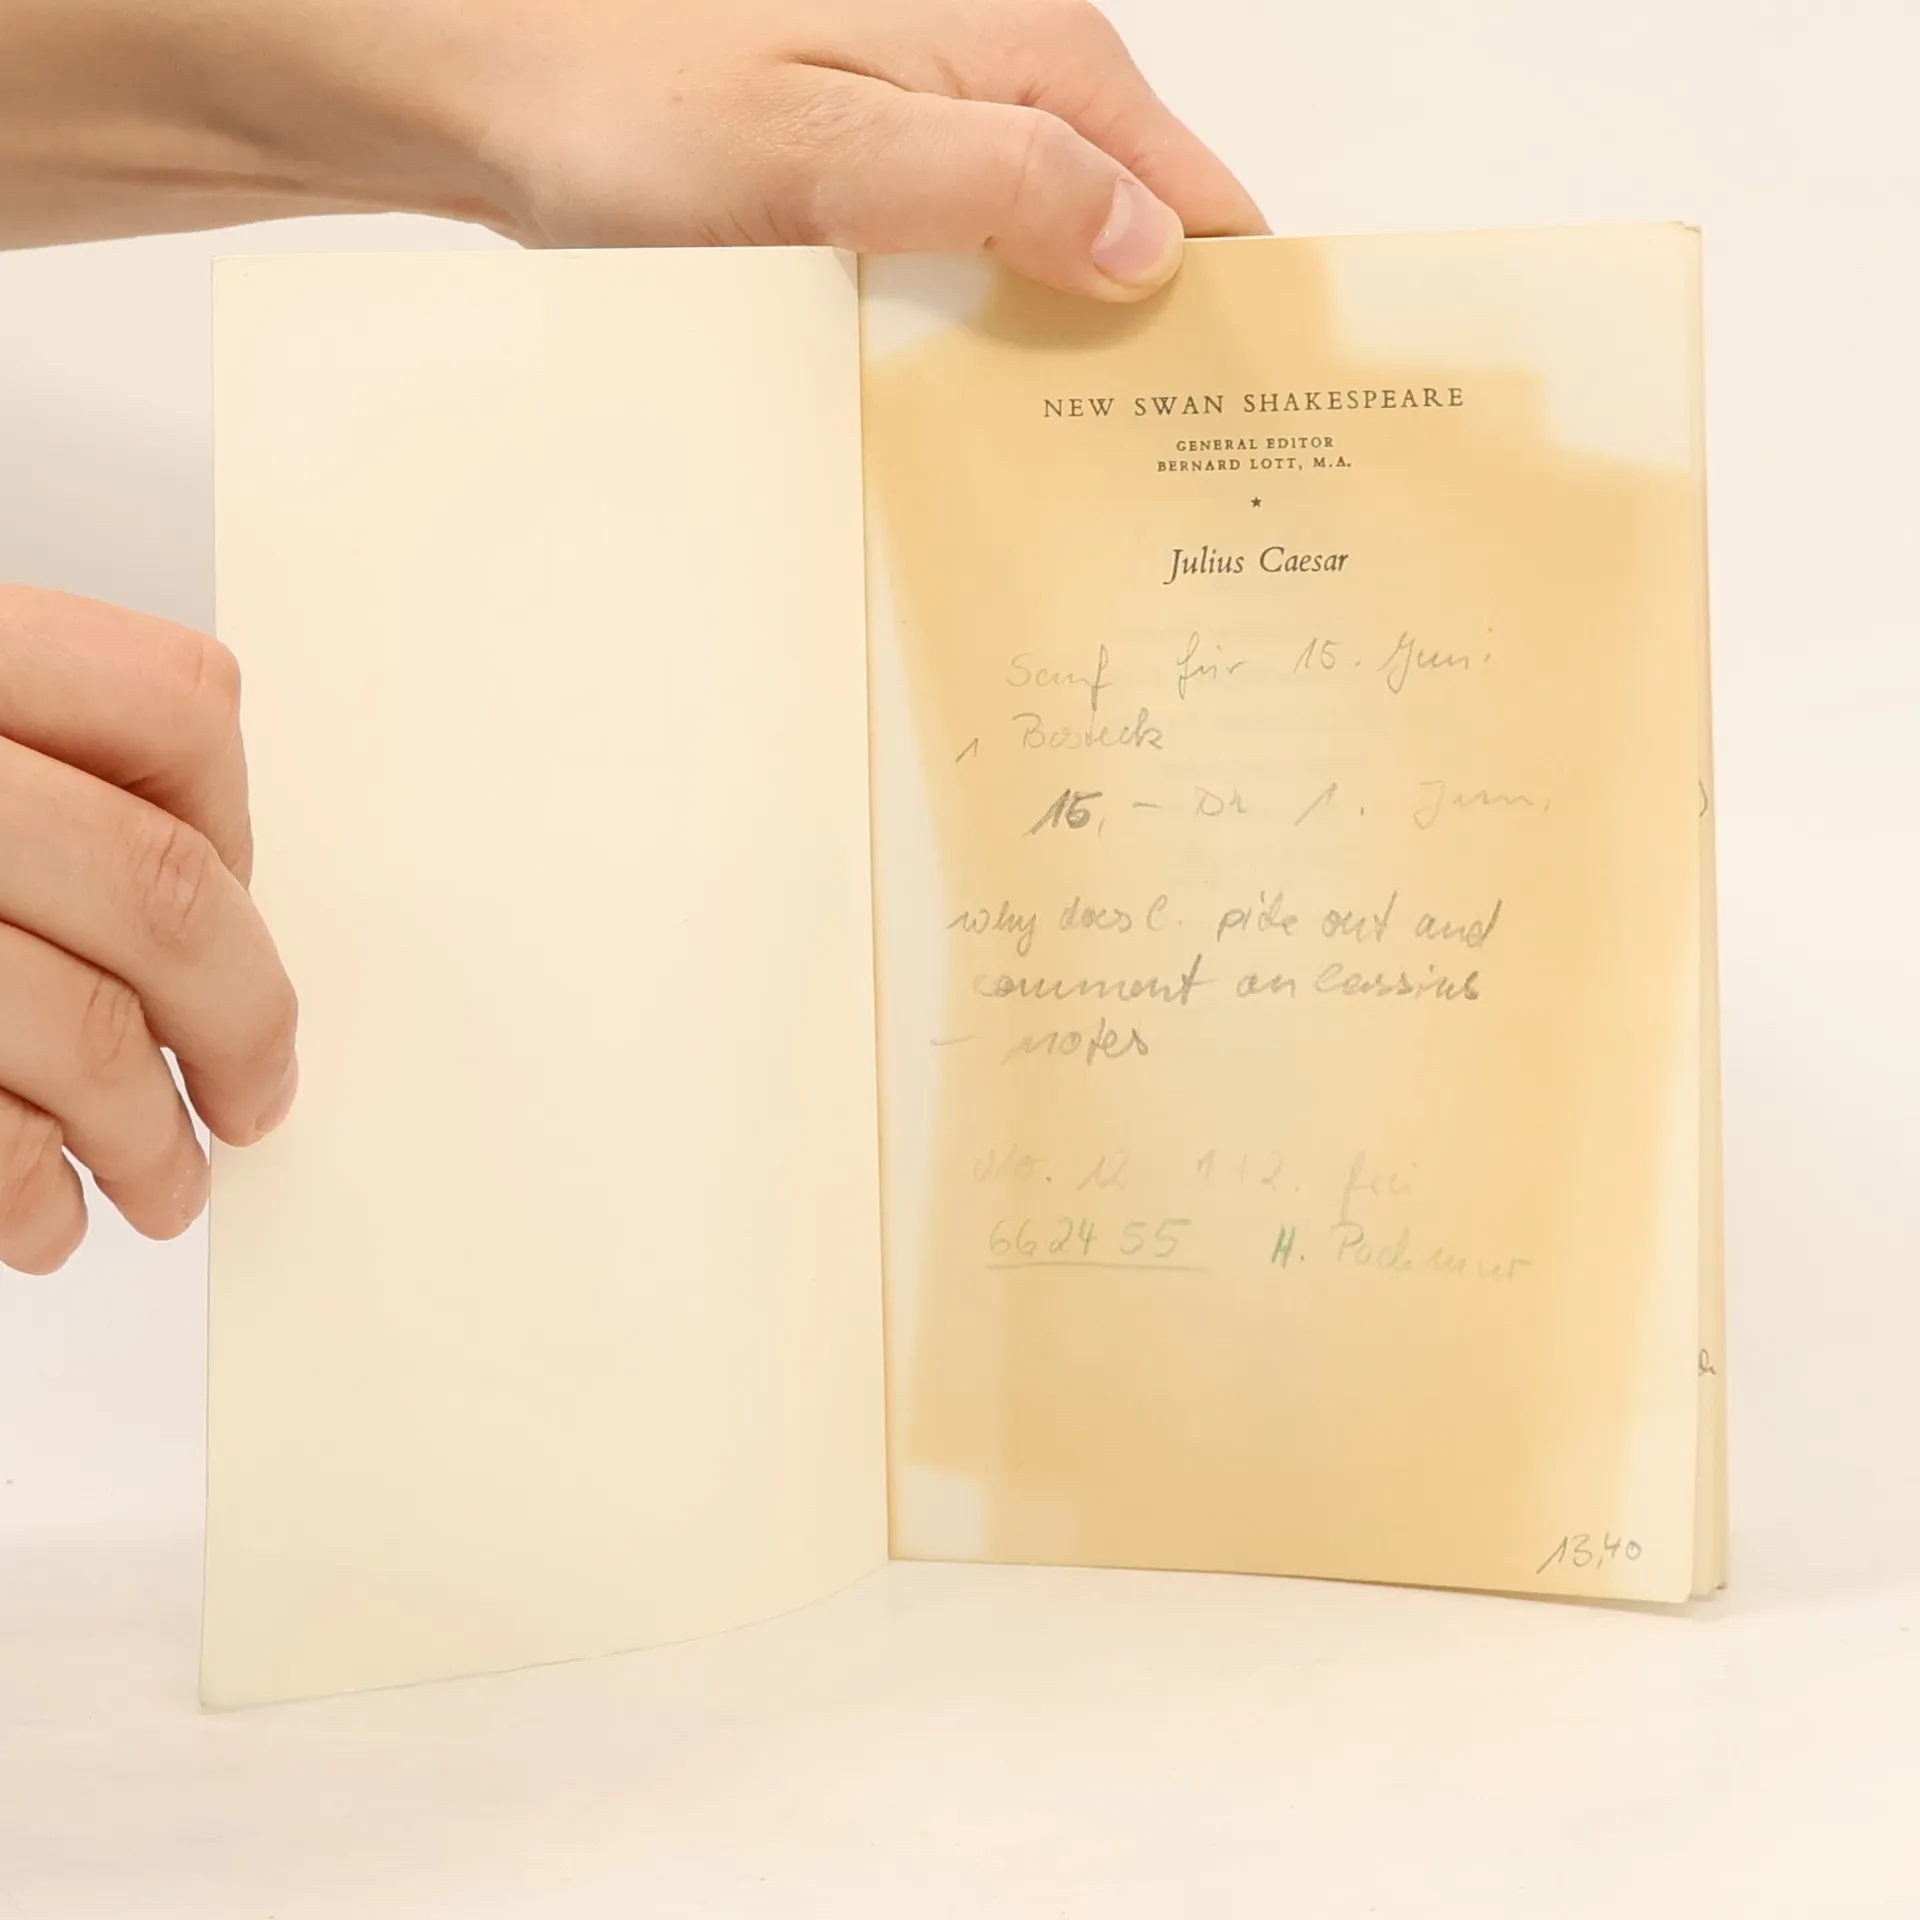 NEW SWAN SHAKESPEARE
GENERAL EDITOR
BERNARD LOTT, M.A.
★
Julius Caesar
für 15. Juni
1
15,- 1. Juni
why does C. out and
comment on Cassius
- notes
12 1+2. frei
662455 H.
13,40